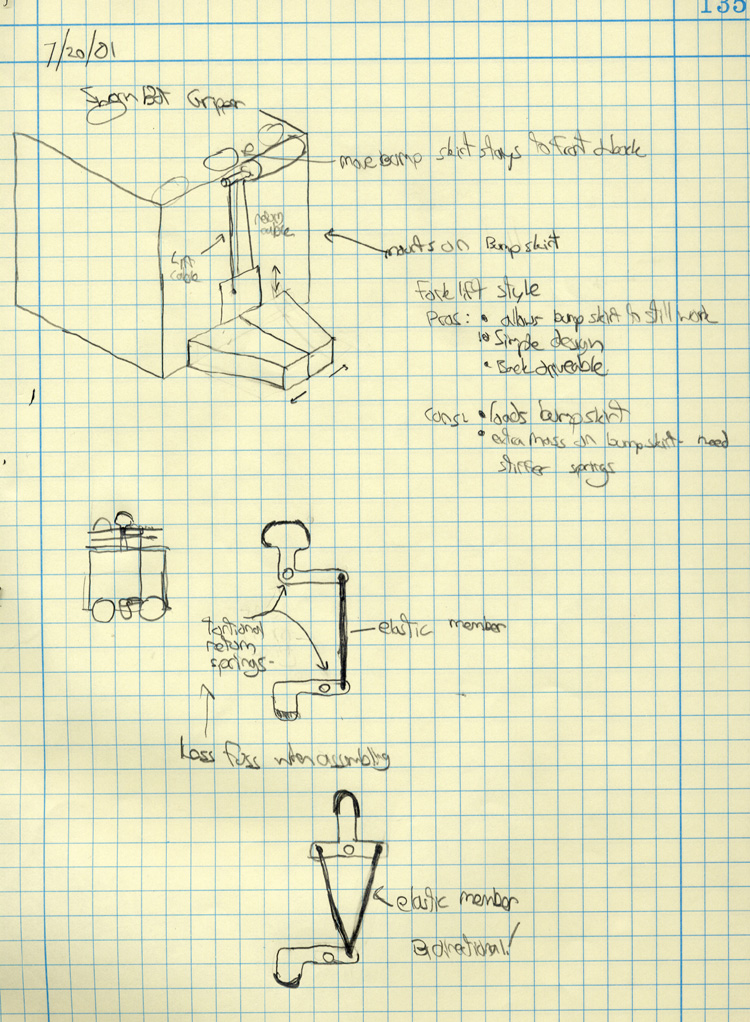 135
7/20/01
Bot Gripper
move bump skirt stays to front & back
return
cable
Lift
cable
mounts on Bump skirt
Fork lift style
Pros: • allows bump skirt to still work
• Simple design
• Back driveable
Cons: • loads bump skirt
• extra mass on bump skirt - need
stiffer springs
Tortional
return
springs-
elastic member
Less fuss when assembling
elastic member
Bidirectional!